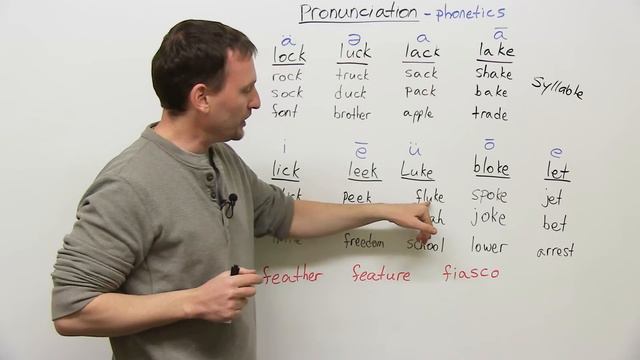 Pronunciation - phonetics
ä ə a ā
lock luck lack lake
rock truck sack shake
Syllable
sock duck pack bake
font brother apple trade
i ē ü ō e
lick leek Luke bloke let
peek fluke spoke jet
joke bet
freedom school lower arrest
feather feature fiasco